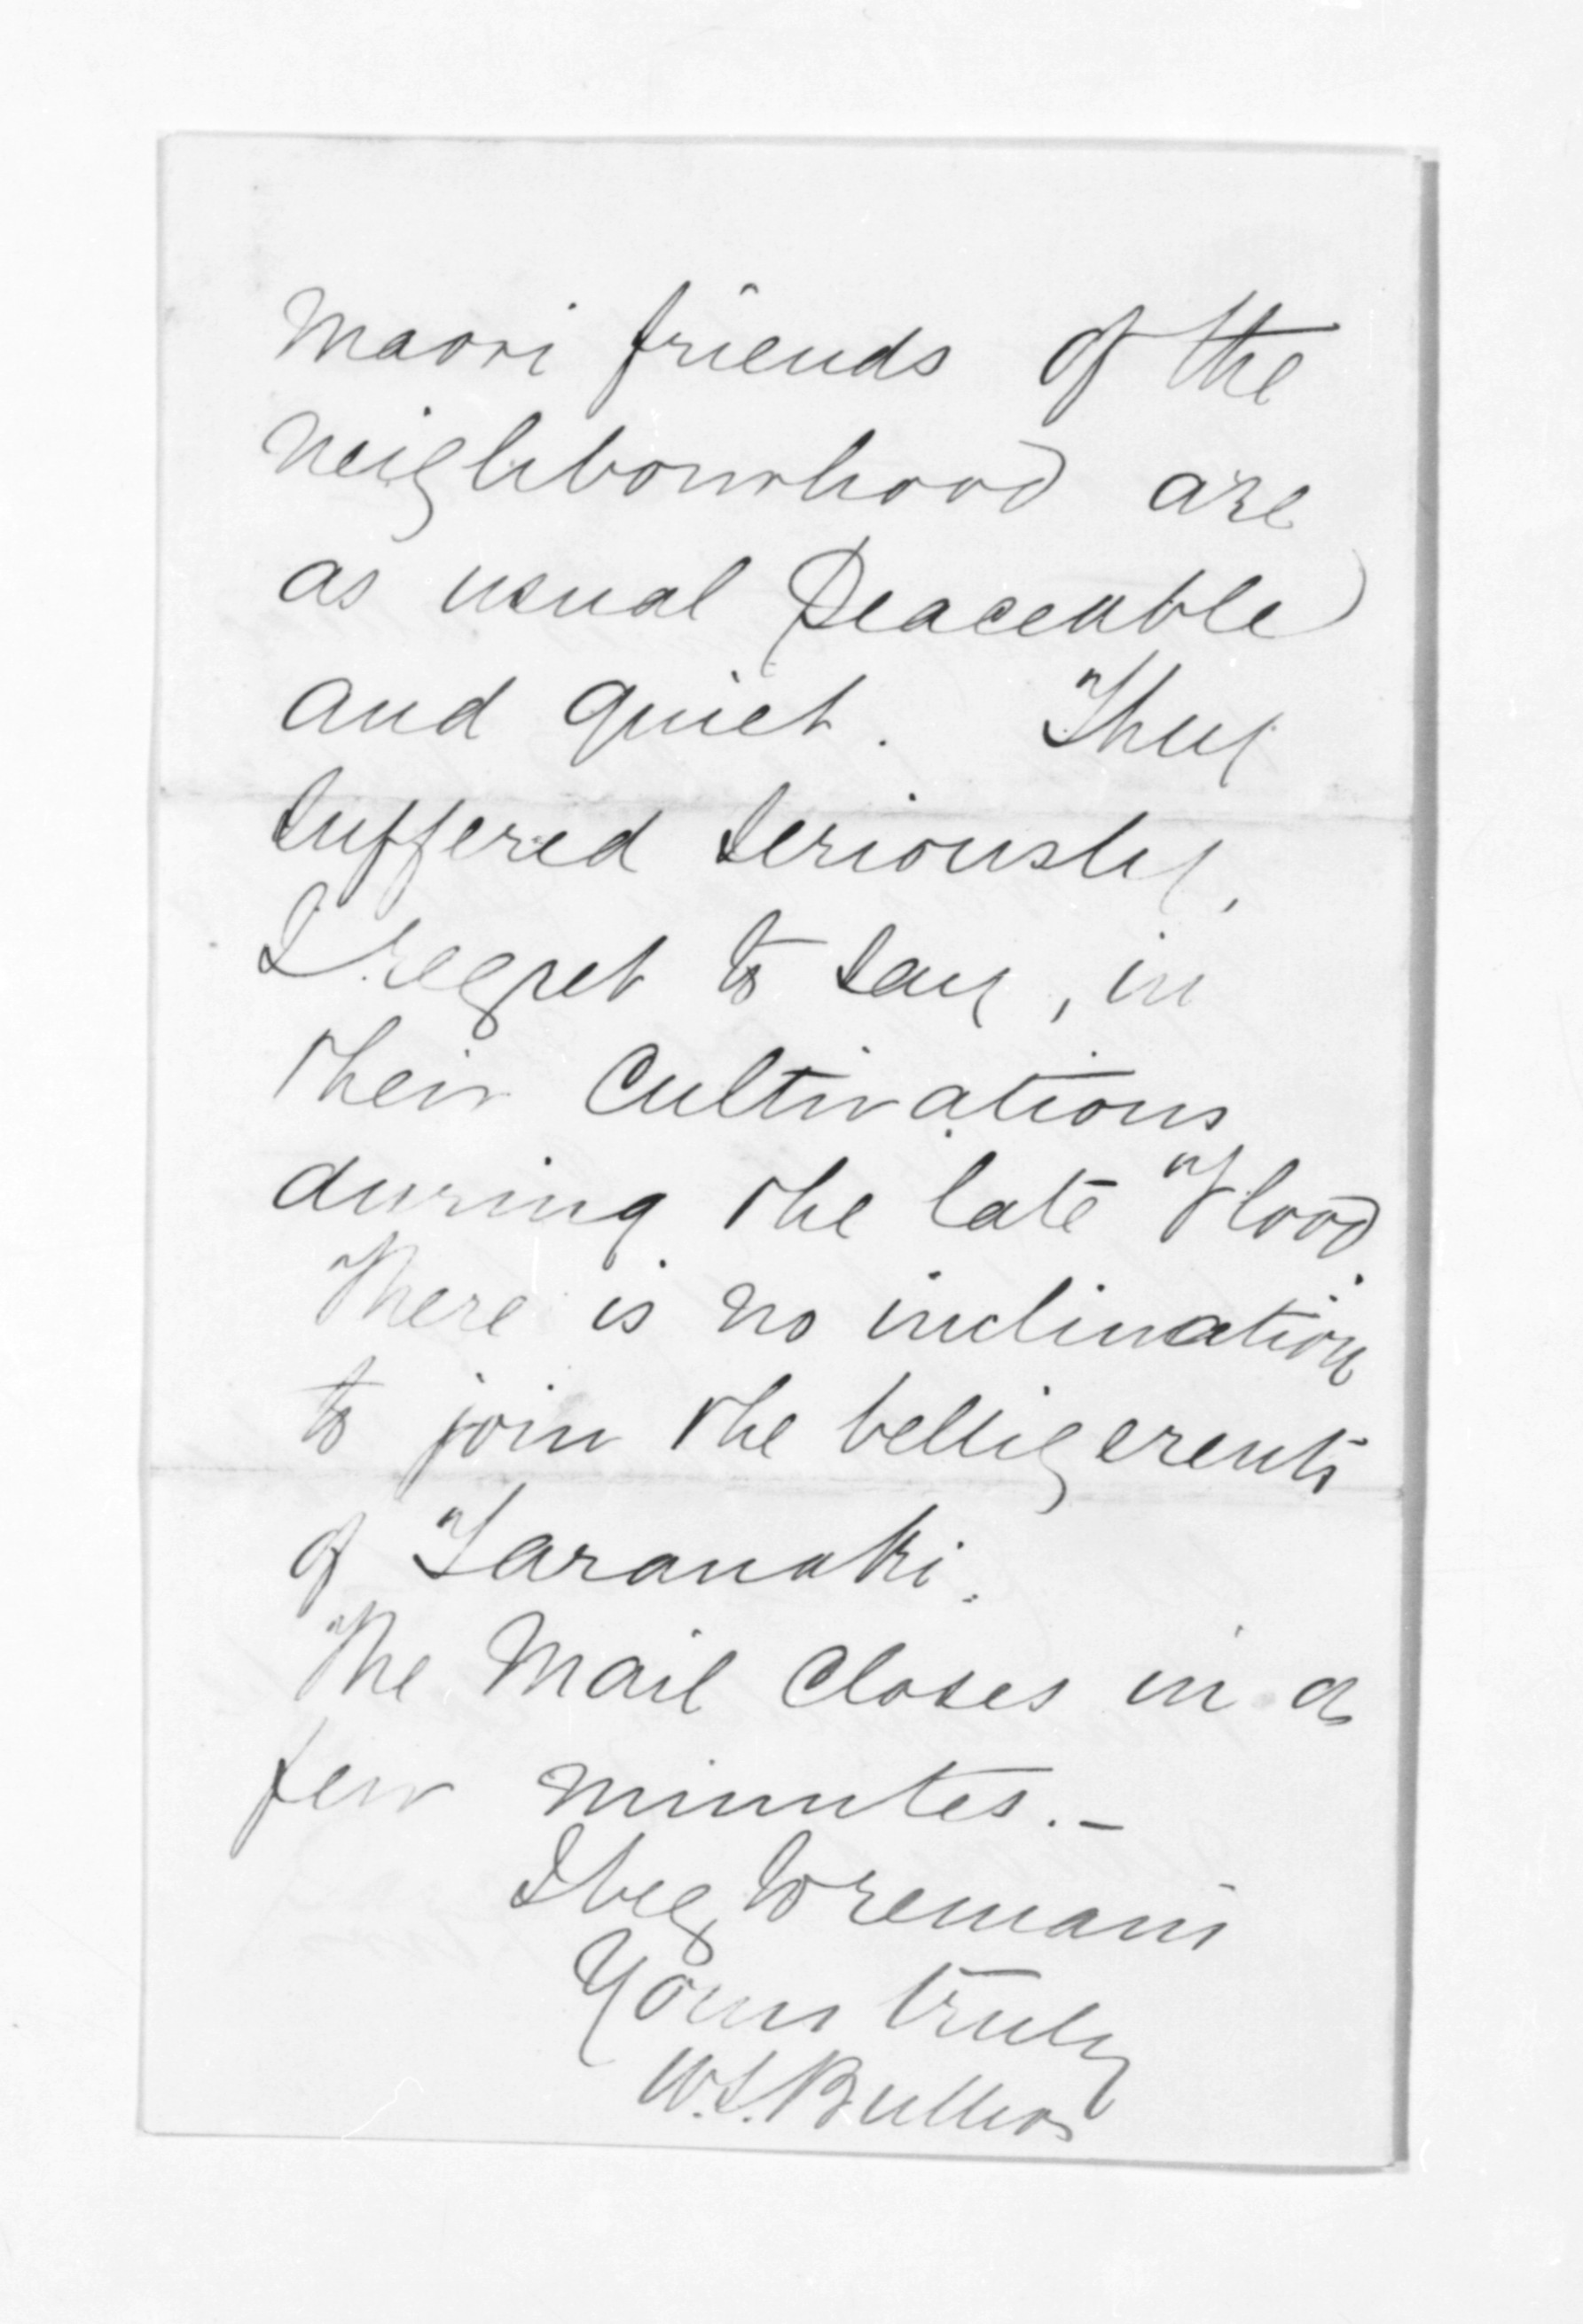 Maori friends of the
neighbourhood are
as usual Peaceable
and quiet. They
suffered seriously,
I regret to say, in
their Cultivations
during the late Flood.
There is no inclination
to join the belligerents
of Taranaki.
The Mail Closes in a
few minutes.-
I beg to remain
Yours truly
W.S.